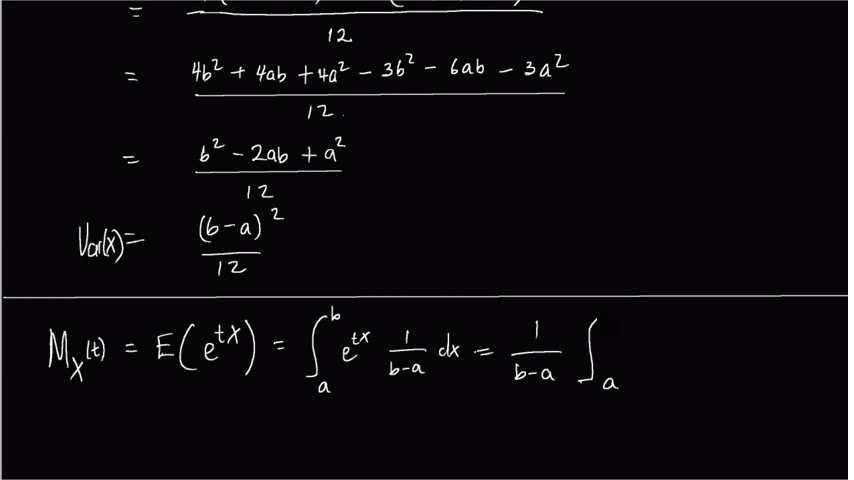 = 12
= 4b² + 4ab + 4a² - 3b² - 6ab - 3a² / 12
= b² - 2ab + a² / 12
Var(x) = (b-a)² / 12
M_X(t) = E(e^{tX}) = ∫_a^b e^{tx} 1/(b-a) dx = 1/(b-a) ∫_a